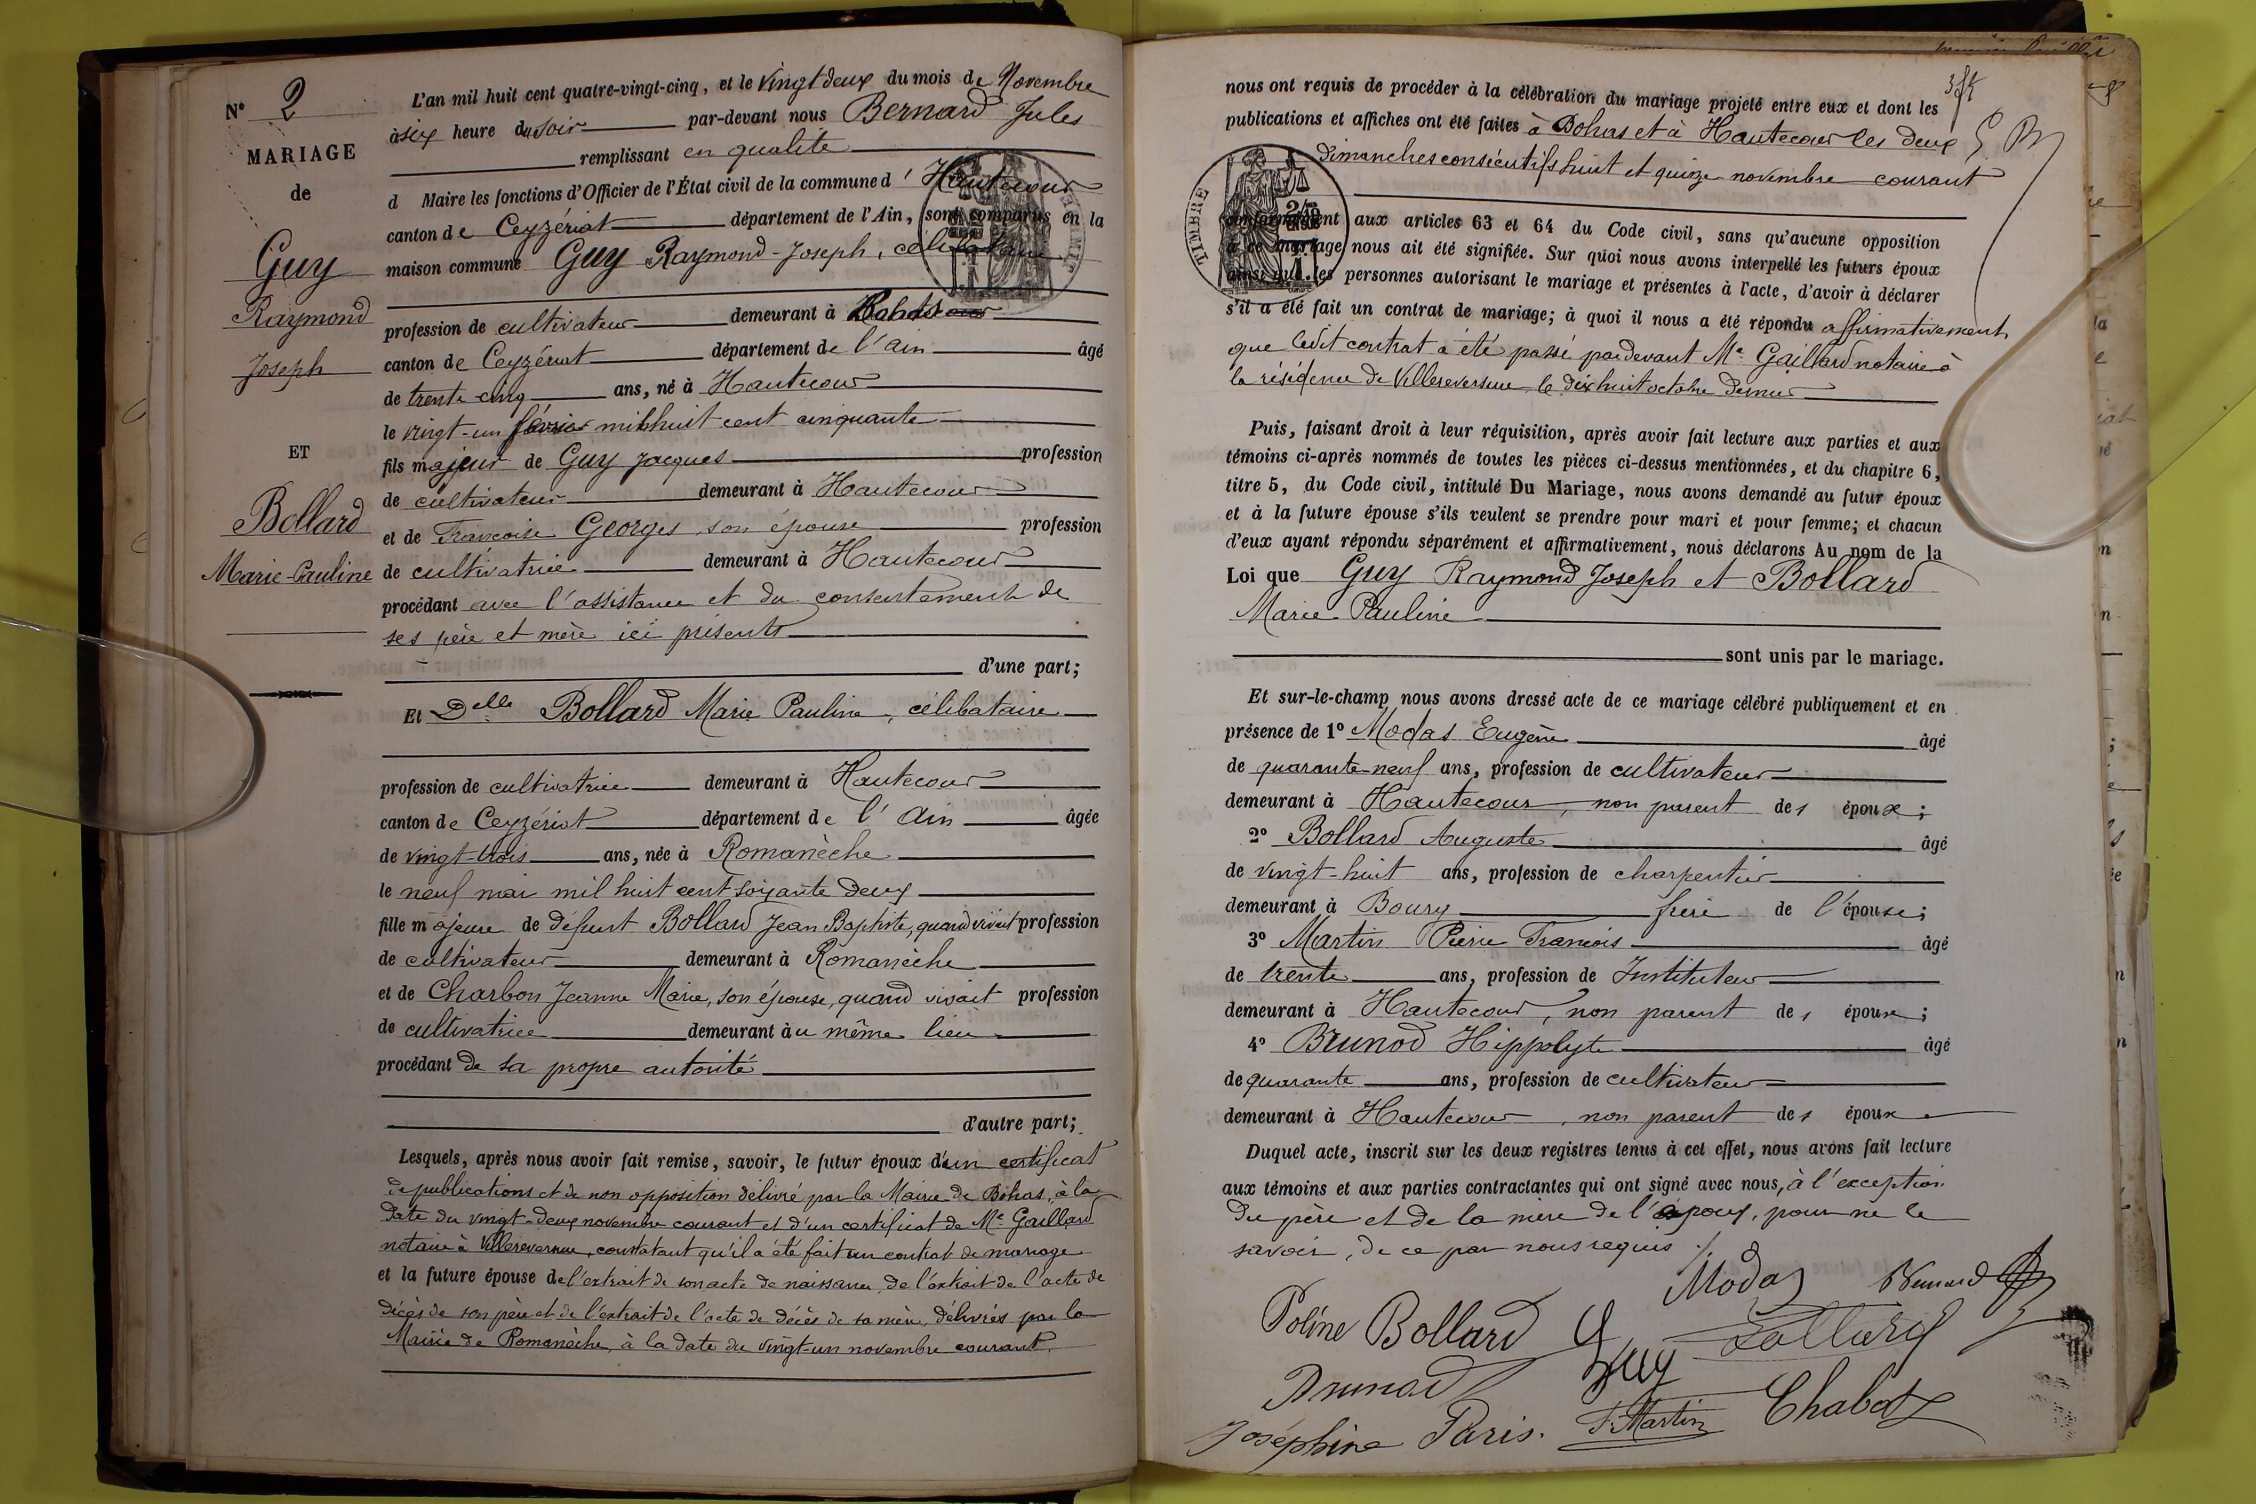 N° 2
MARIAGE
de
Guy
Raymond
Joseph
ET
Bollard
Marie-Pauline
L'an mil huit cent quatre-vingt-cinq, et le vingt deux du mois de Novembre
à six heure du soir par-devant nous Bernard Jules
remplissant en qualité
d Maire les fonctions d'Officier de l'État civil de la commune d' Hautecour
canton de Ceyzériat département de l'Ain, sont comparus en la
maison commune Guy Raymond-Joseph, célibataire
profession de cultivateur demeurant à Bohas
canton de Ceyzériat département de l'ain âgé
de trente-cinq ans, né à Hautecour
le vingt-un février mil huit cent cinquante
fils majeur de Guy Jacques profession
de cultivateur demeurant à Hautecour
et de Françoise Georges son épouse profession
de cultivatrice demeurant à Hautecour
procédant avec l'assistance et du consentement de
ses père et mère ici présents
d'une part;
Et Delle Bollard Marie Pauline, célibataire
profession de cultivatrice demeurant à Hautecour
canton de Ceyzériat département de l'Ain âgée
de vingt-trois ans, née à Romanèche
le neuf mai mil huit cent soixante deux
fille majeure de défunt Bollard Jean Baptiste, quand vivait profession
de cultivateur demeurant à Romanèche
et de Charbon Jeanne Marie, son épouse, quand vivait profession
de cultivatrice demeurant au même lieu
procédant de sa propre autorité
d'autre part;
Lesquels, après nous avoir fait remise, savoir, le futur époux d'un certificat
de publications et de non opposition délivré par la Mairie de Bohas, à la
date du vingt-deux novembre courant et d'un certificat de Me Gaillard
notaire à Villereversure, constatant qu'il a été fait un contrat de mariage
et la future épouse de l'extrait de son acte de naissance, de l'extrait de l'acte de
décès de son père et de l'extrait de l'acte de décès de sa mère, délivrés par la
Mairie de Romanèche, à la date du vingt-un novembre courant.
nous ont requis de procéder à la célébration du mariage projeté entre eux et dont les
publications et affiches ont été faites à Bohas et à Hautecour les deux
dimanches consécutifs huit et quinze novembre courant
TIMBRE
conformément aux articles 63 et 64 du Code civil, sans qu'aucune opposition
à ce mariage nous ait été signifiée. Sur quoi nous avons interpellé les futurs époux
ainsi que les personnes autorisant le mariage et présentes à l'acte, d'avoir à déclarer
s'il a été fait un contrat de mariage; à quoi il nous a été répondu affirmativement
que ledit contrat a été passé pardevant Me Gaillard notaire à
la résidence de Villereversure le dix huit octobre dernier
Puis, faisant droit à leur réquisition, après avoir fait lecture aux parties et aux
témoins ci-après nommés de toutes les pièces ci-dessus mentionnées, et du chapitre 6,
titre 5, du Code civil, intitulé Du Mariage, nous avons demandé au futur époux
et à la future épouse s'ils veulent se prendre pour mari et pour femme; et chacun
d'eux ayant répondu séparément et affirmativement, nous déclarons Au nom de la
Loi que Guy Raymond Joseph et Bollard
Marie Pauline
sont unis par le mariage.
Et sur-le-champ nous avons dressé acte de ce mariage célébré publiquement et en
présence de 1° Modas Eugène âgé
de quarante-neuf ans, profession de cultivateur
demeurant à Hautecour, non parent des époux;
2° Bollard Auguste âgé
de vingt-huit ans, profession de charpentier
demeurant à Bourg frère de l'épouse;
3° Martin Pierre François âgé
de trente ans, profession de Instituteur
demeurant à Hautecour, non parent des époux;
4° Brunod Hippolyte âgé
de quarante ans, profession de cultivateur
demeurant à Hautecour, non parent des époux
Duquel acte, inscrit sur les deux registres tenus à cet effet, nous avons fait lecture
aux témoins et aux parties contractantes qui ont signé avec nous, à l'exception
du père et de la mère de l'époux, pour ne le
savoir, de ce par nous requis ./.
Modas Bernard
Poline Bollard Guy Bollard
Brunod
Joséphine Paris. F. Martin Chabod